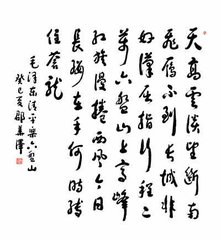 天高雲淡望斷南
飛雁不到長城非
好漢屈指行程二
萬六盤山上高峰
紅旗漫捲西風今日
長纓在手何時縛
住蒼龍
毛澤東清平樂六盤山
癸巳夏